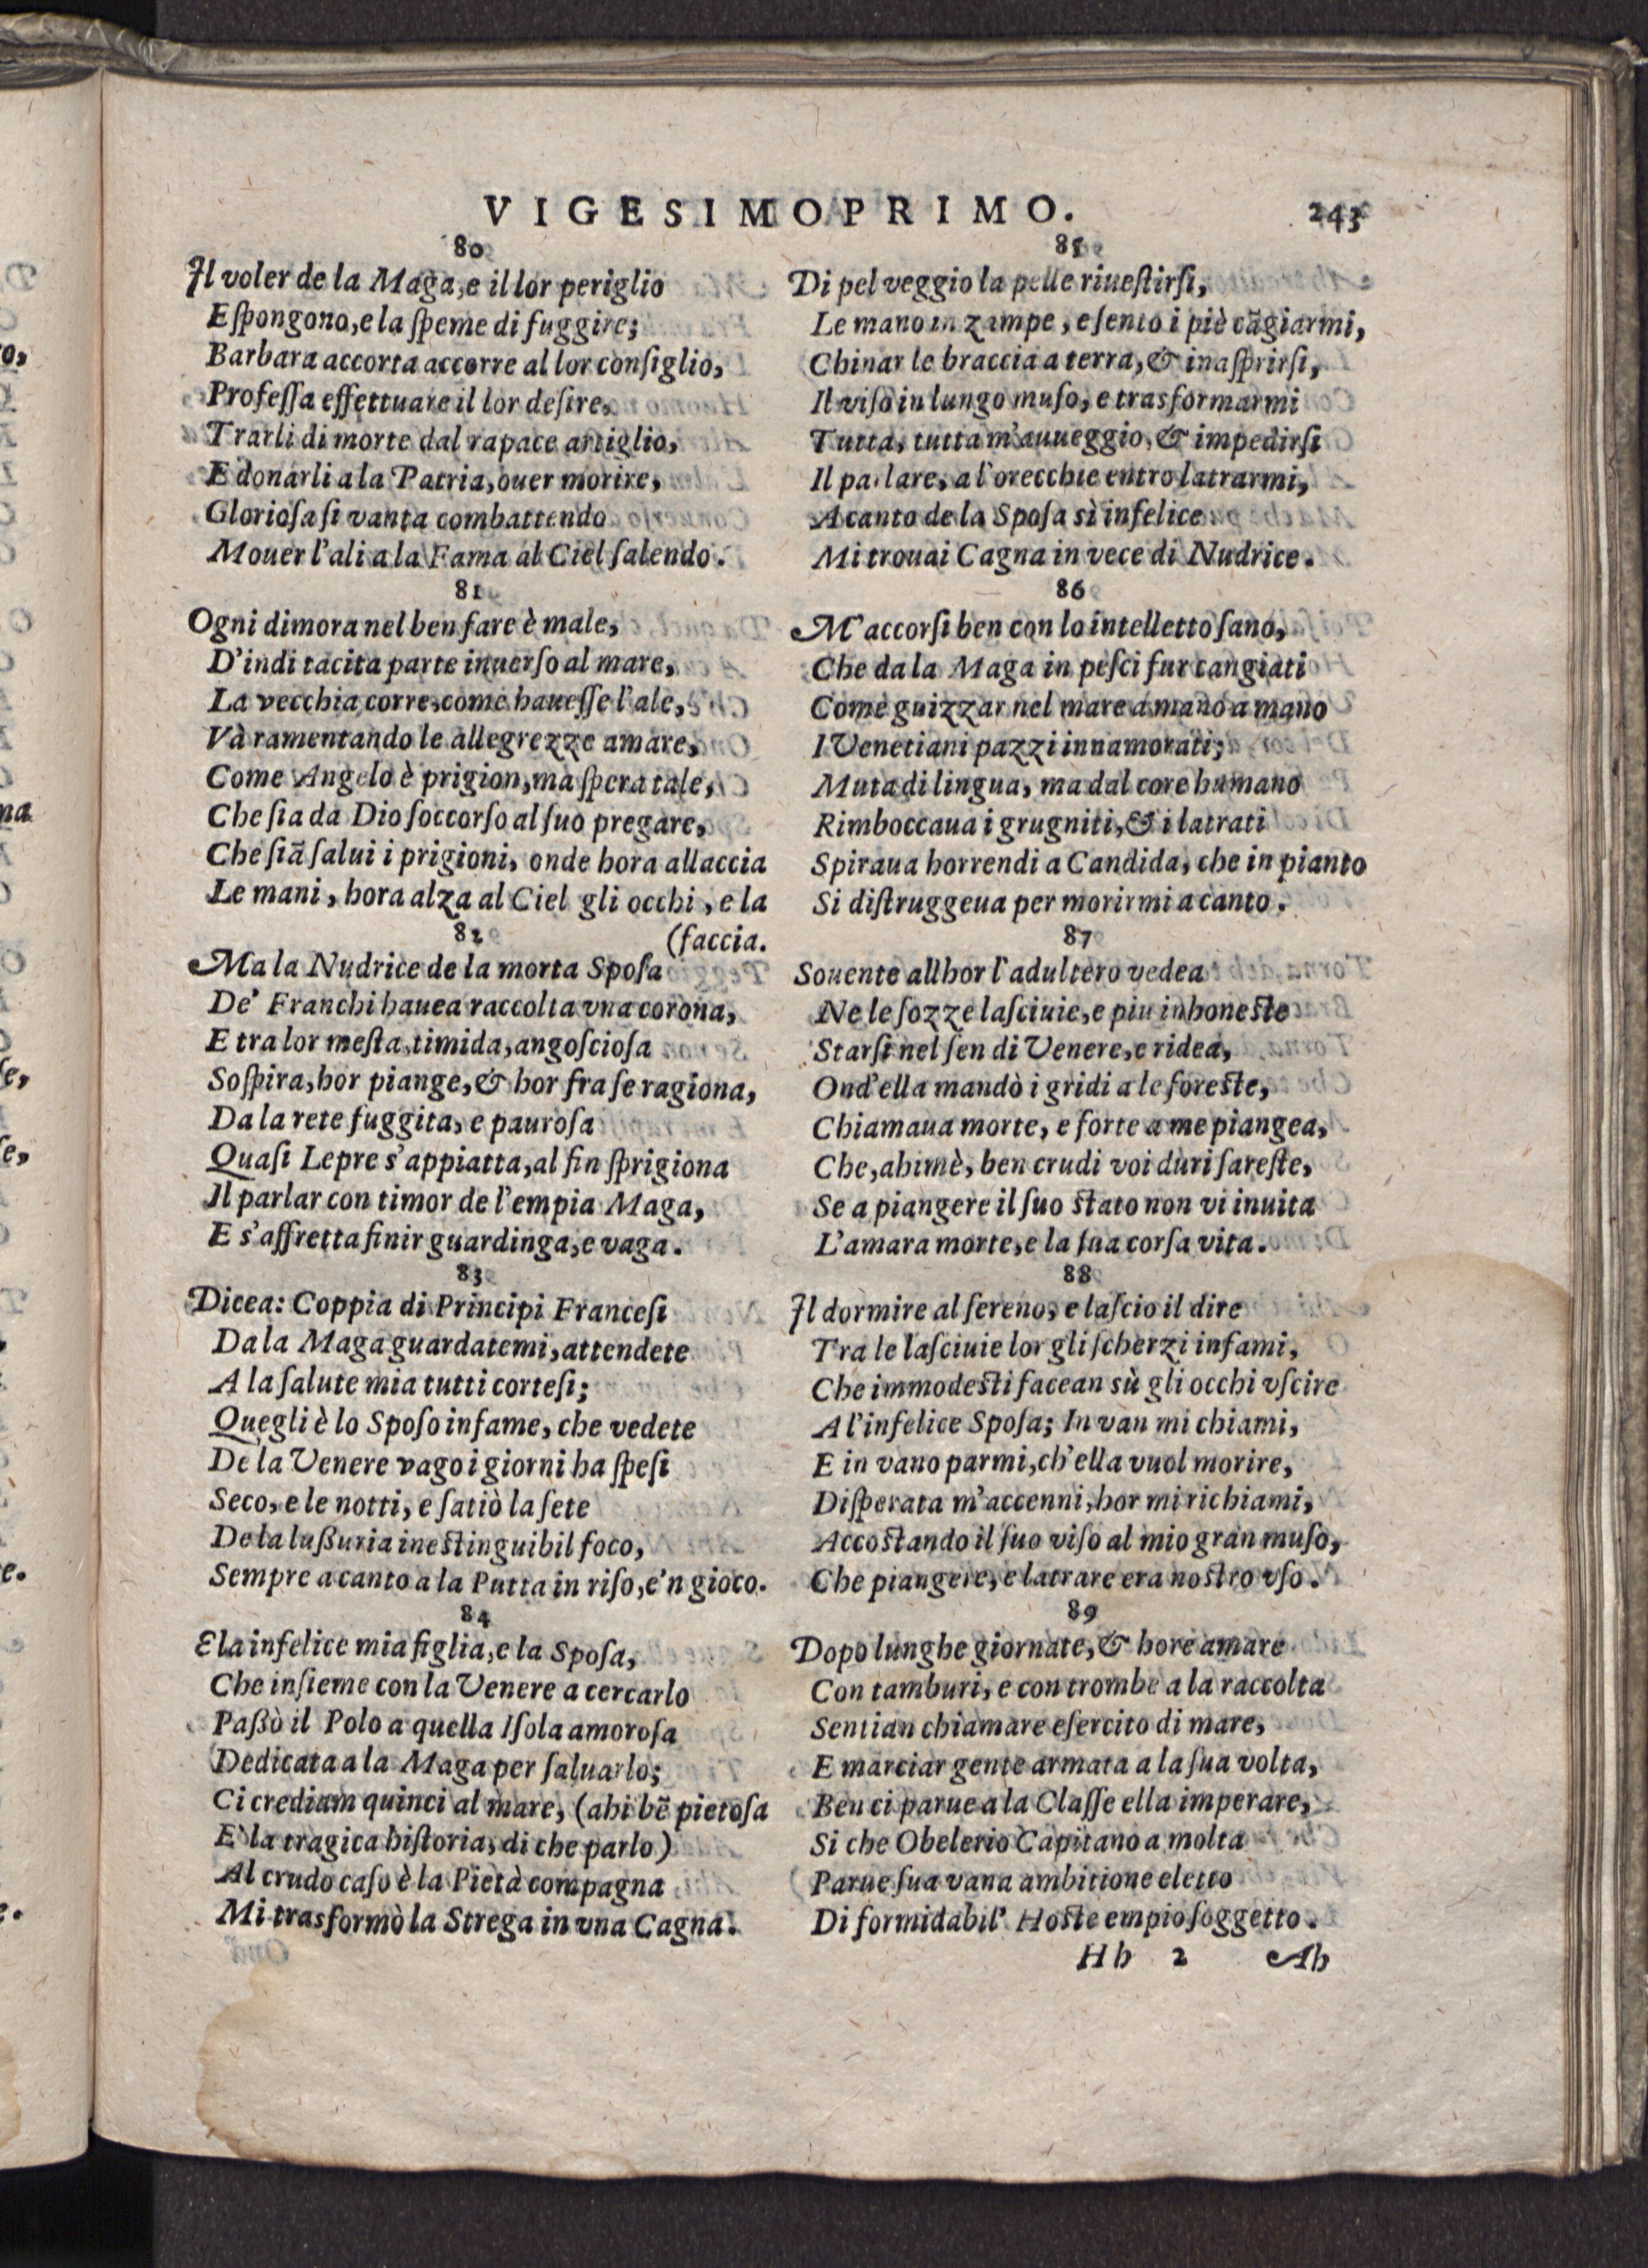 VIGESIMOPRIMO. 243
80
Il voler de la Maga, e il lor periglio
Eſpongono, e la ſpeme di fuggire;
Barbara accorta accorre al lor conſiglio,
Profeſſa effettuare il lor deſire,
Trarli di morte dal rapace artiglio,
E donarli a la Patria, ouer morire,
Glorioſa ſi vanta combattendo
Mouer l'ali a la Fama al Ciel ſalendo.
81
Ogni dimora nel ben fare è male,
D'indi tacita parte inuerſo al mare,
La vecchia corre, come haueſſe l'ale,
Và ramentando le allegrezze amare,
Come Angelo è prigion, ma ſpera tale,
Che ſia da Dio ſoccorſo al ſuo pregare,
Che ſiā ſalui i prigioni, onde hora allaccia
Le mani, hora alza al Ciel gli occhi, e la
(faccia.
82
Ma la Nudrice de la morta Spoſa
De' Franchi hauea raccolta vna corona,
E tra lor meſta, timida, angoſcioſa
Soſpira, hor piange, & hor fra ſe ragiona,
Da la rete fuggita, e pauroſa
Quaſi Lepre s'appiatta, al fin ſprigiona
Il parlar con timor de l'empia Maga,
E s'affretta finir guardinga, e vaga.
83
Dicea: Coppia di Principi Franceſi
Da la Maga guardatemi, attendete
A la ſalute mia tutti corteſi;
Quegli è lo Spoſo infame, che vedete
De la Venere vago i giorni ha ſpeſi
Seco, e le notti, e ſatiò la ſete
De la lußuria ineſtinguibil foco,
Sempre a canto a la Putta in riſo, e'n gioco.
84
E la infelice mia figlia, e la Spoſa,
Che inſieme con la Venere a cercarlo
Paßò il Polo a quella Iſola amoroſa
Dedicata a la Maga per ſaluarlo;
Ci crediam quinci al mare, (ahi bē pietoſa
E' la tragica hiſtoria, di che parlo)
Al crudo caſo è la Pietà compagna
Mi trasformò la Strega in vna Cagna.
85
Di pel veggio la pelle riueſtirſi,
Le mano in zampe, e ſento i piè cāgiarmi,
Chinar le braccia a terra, & inaſprirſi,
Il viſo in lungo muſo, e trasformarmi
Tutta, tutta m'auueggio, & impedirſi
Il parlare, a l'orecchie entro latrarmi,
A canto de la Spoſa sì infelice
Mi trouai Cagna in vece di Nudrice.
86
M'accorſi ben con lo intelletto ſano,
Che da la Maga in peſci fur cangiati
Come guizzar nel mare a mano a mano
I Venetiani pazzi innamorati;
Muta di lingua, ma dal core humano
Rimboccaua i grugniti, & i latrati
Spiraua horrendi a Candida, che in pianto
Si diſtruggeua per morirmi a canto.
87
Souente allhor l'adultero vedea
Ne le ſozze laſciuie, e piu inhoneſte
Starſi nel ſen di Venere, e ridea,
Ond'ella mandò i gridi a le foreſte,
Chiamaua morte, e forte a me piangea,
Che, ahimè, ben crudi voi duri ſareſte,
Se a piangere il ſuo ſtato non vi inuita
L'amara morte, e la ſua corſa vita.
88
Il dormire al ſereno, e laſcio il dire
Tra le laſciuie lor gli ſcherzi infami,
Che immodeſti facean sù gli occhi vſcire
A l'infelice Spoſa; In van mi chiami,
E in vano parmi, ch'ella vuol morire,
Diſperata m'accenni, hor mi richiami,
Accoſtando il ſuo viſo al mio gran muſo,
Che piangere, e latrare era noſtro vſo.
89
Dopo lunghe giornate, & hore amare
Con tamburi, e con trombe a la raccolta
Sentian chiamare eſercito di mare,
E marciar gente armata a la ſua volta,
Ben ci parue a la Claſſe ella imperare,
Si che Obelerio Capitano a molta
Parue ſua vana ambitione eletto
Di formidabil' Hoſte empio ſoggetto.
Hh 2 Ah